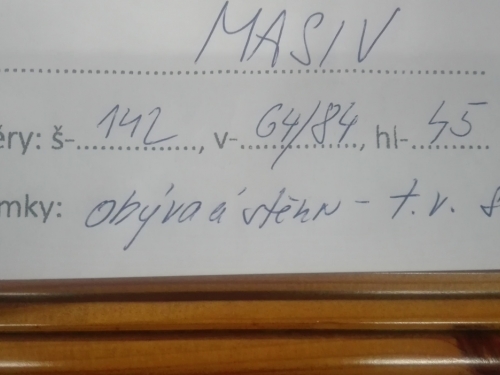 MASIV
ěry: š- 142, v- 64/84, hl- 45
mky: obývaá stěnn - t.v. 8